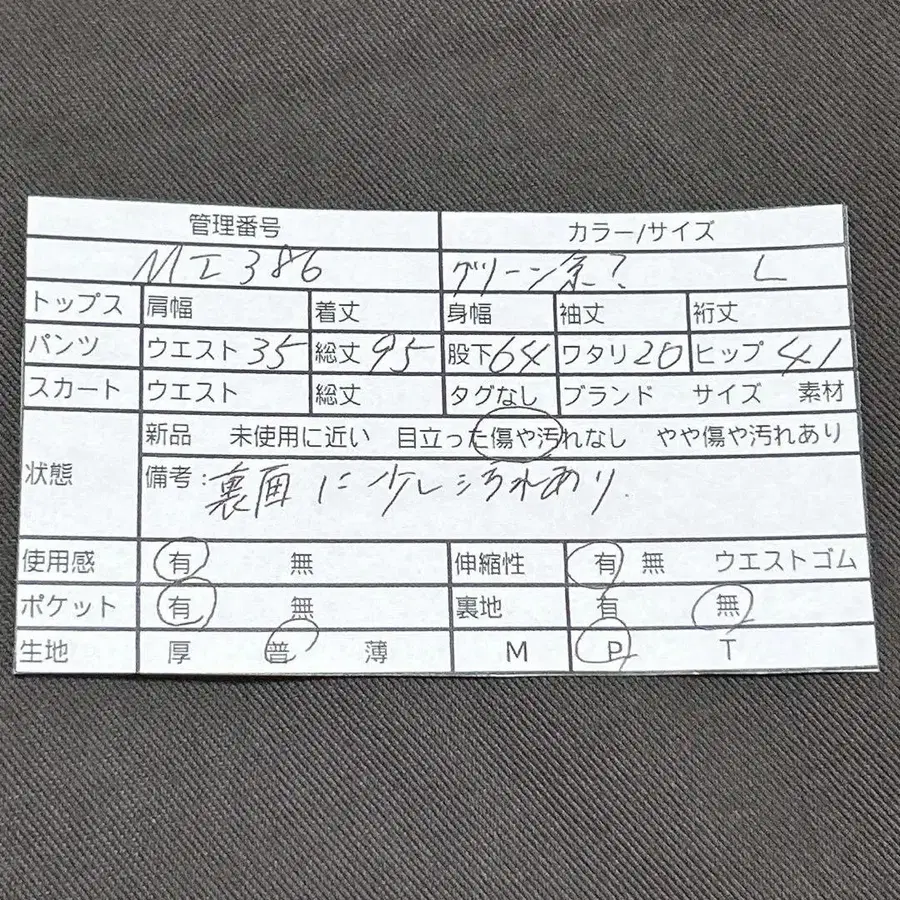 管理番号 カラー/サイズ
MI386 グリーン系? L
トップス 肩幅 着丈 身幅 袖丈 裄丈
パンツ ウエスト 35 総丈 95 股下 64 ワタリ 20 ヒップ 41
スカート ウエスト 総丈 タグなし ブランド サイズ 素材
状態 新品 未使用に近い 目立った傷や汚れなし やや傷や汚れあり
備考: 裏面に少し汚れあり.
使用感 有 無 伸縮性 有 無 ウエストゴム
ポケット 有 無 裏地 有 無
生地 厚 普 薄 M P T